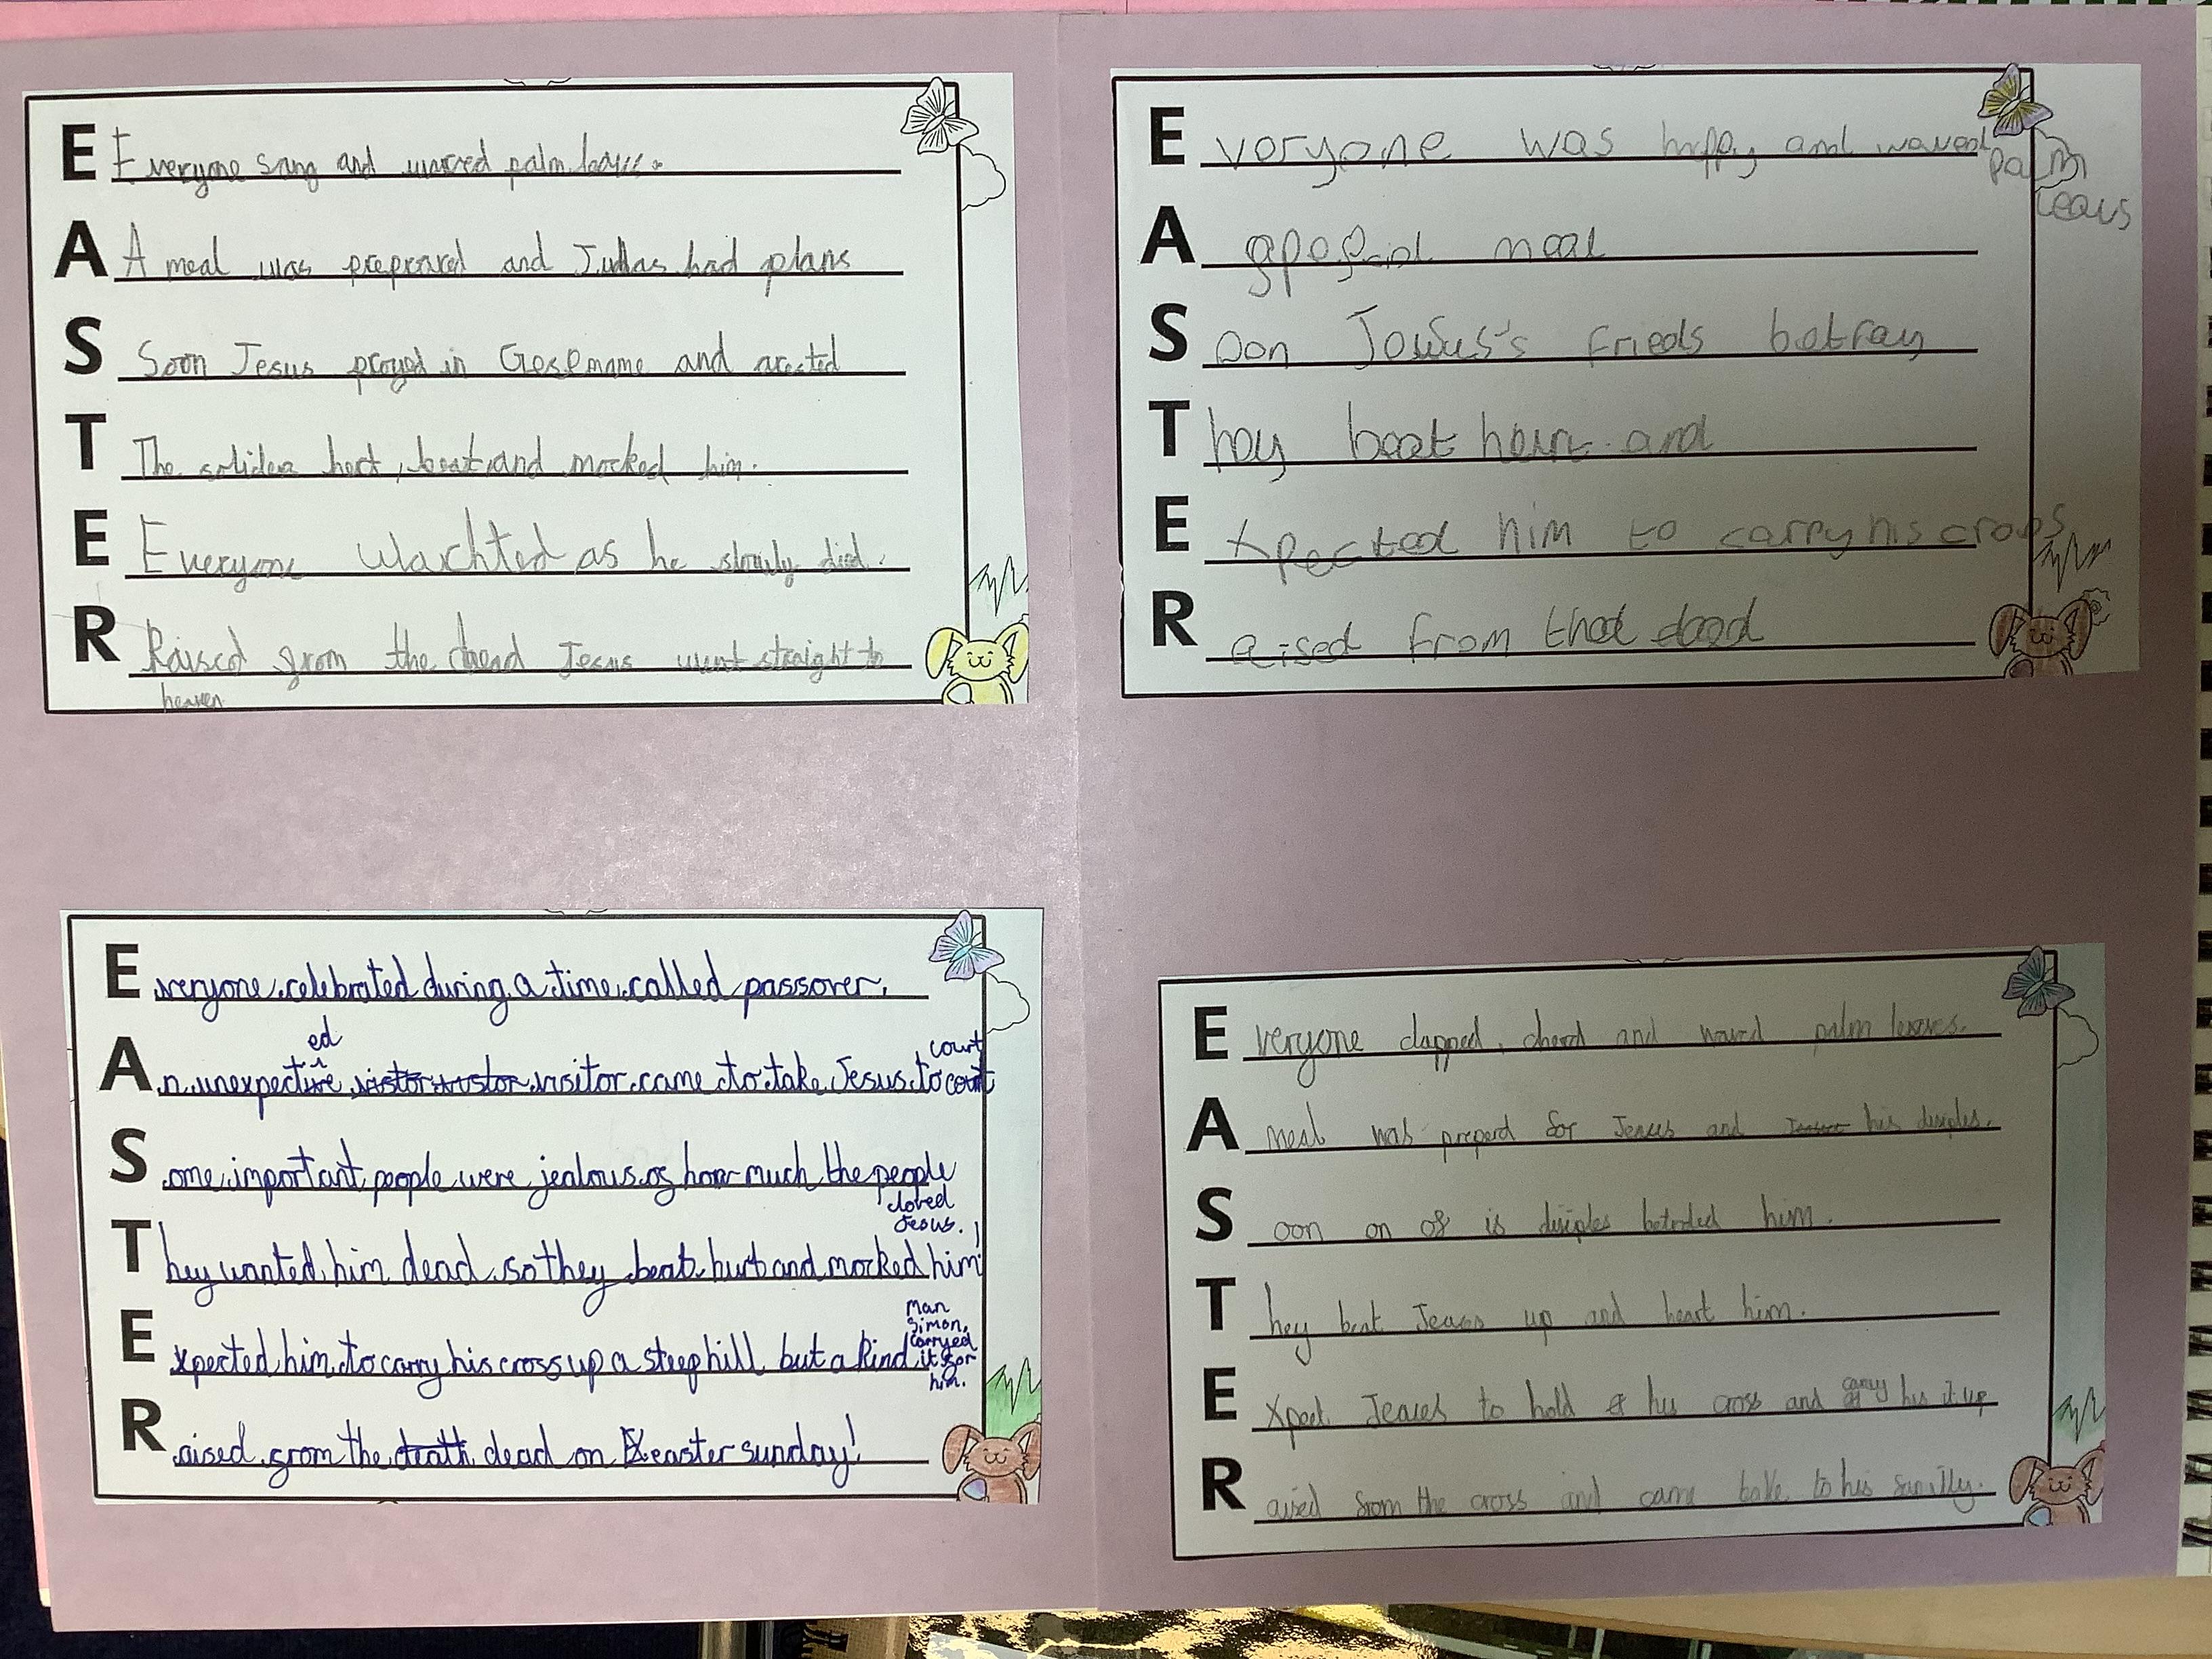 E Everyone sang and waved palm leaves.
A A meal was preprared and Judas had plans
S Soon Jesus prayed in and arested
T The hert, beat and mocked him.
E Everyone wachted as he slowly died.
R Raised from the dead Jesus went straight to
heaven
E veryone was happy and waved
palm
leavs
A speacial meal
S oon Jesus's frieds betray
T hey beat and
E xpected him to carry his cross
R aised from the dead
E veryone celebrated during a time called passover.
ed court
A n unexpected visitor came to take Jesus to court
S ome important people were jealous of how much the people
loved
Jesus.
T hey wanted him dead so they beat, hurt and mocked him!
man
Simon,
carryed
E xpected him to carry his cross up a steep hill but a kind it for
him.
R aised from the death dead on easter sunday!
E veryone clapped, cherd and waved palm leaves.
A meal was preperd for Jesus and his disiples.
S oon on of is disiples him.
T hey beat Jesus up and heart him.
E xpect Jesus to hold his cross and carry his it up
R aised from the cross and came to his familly.